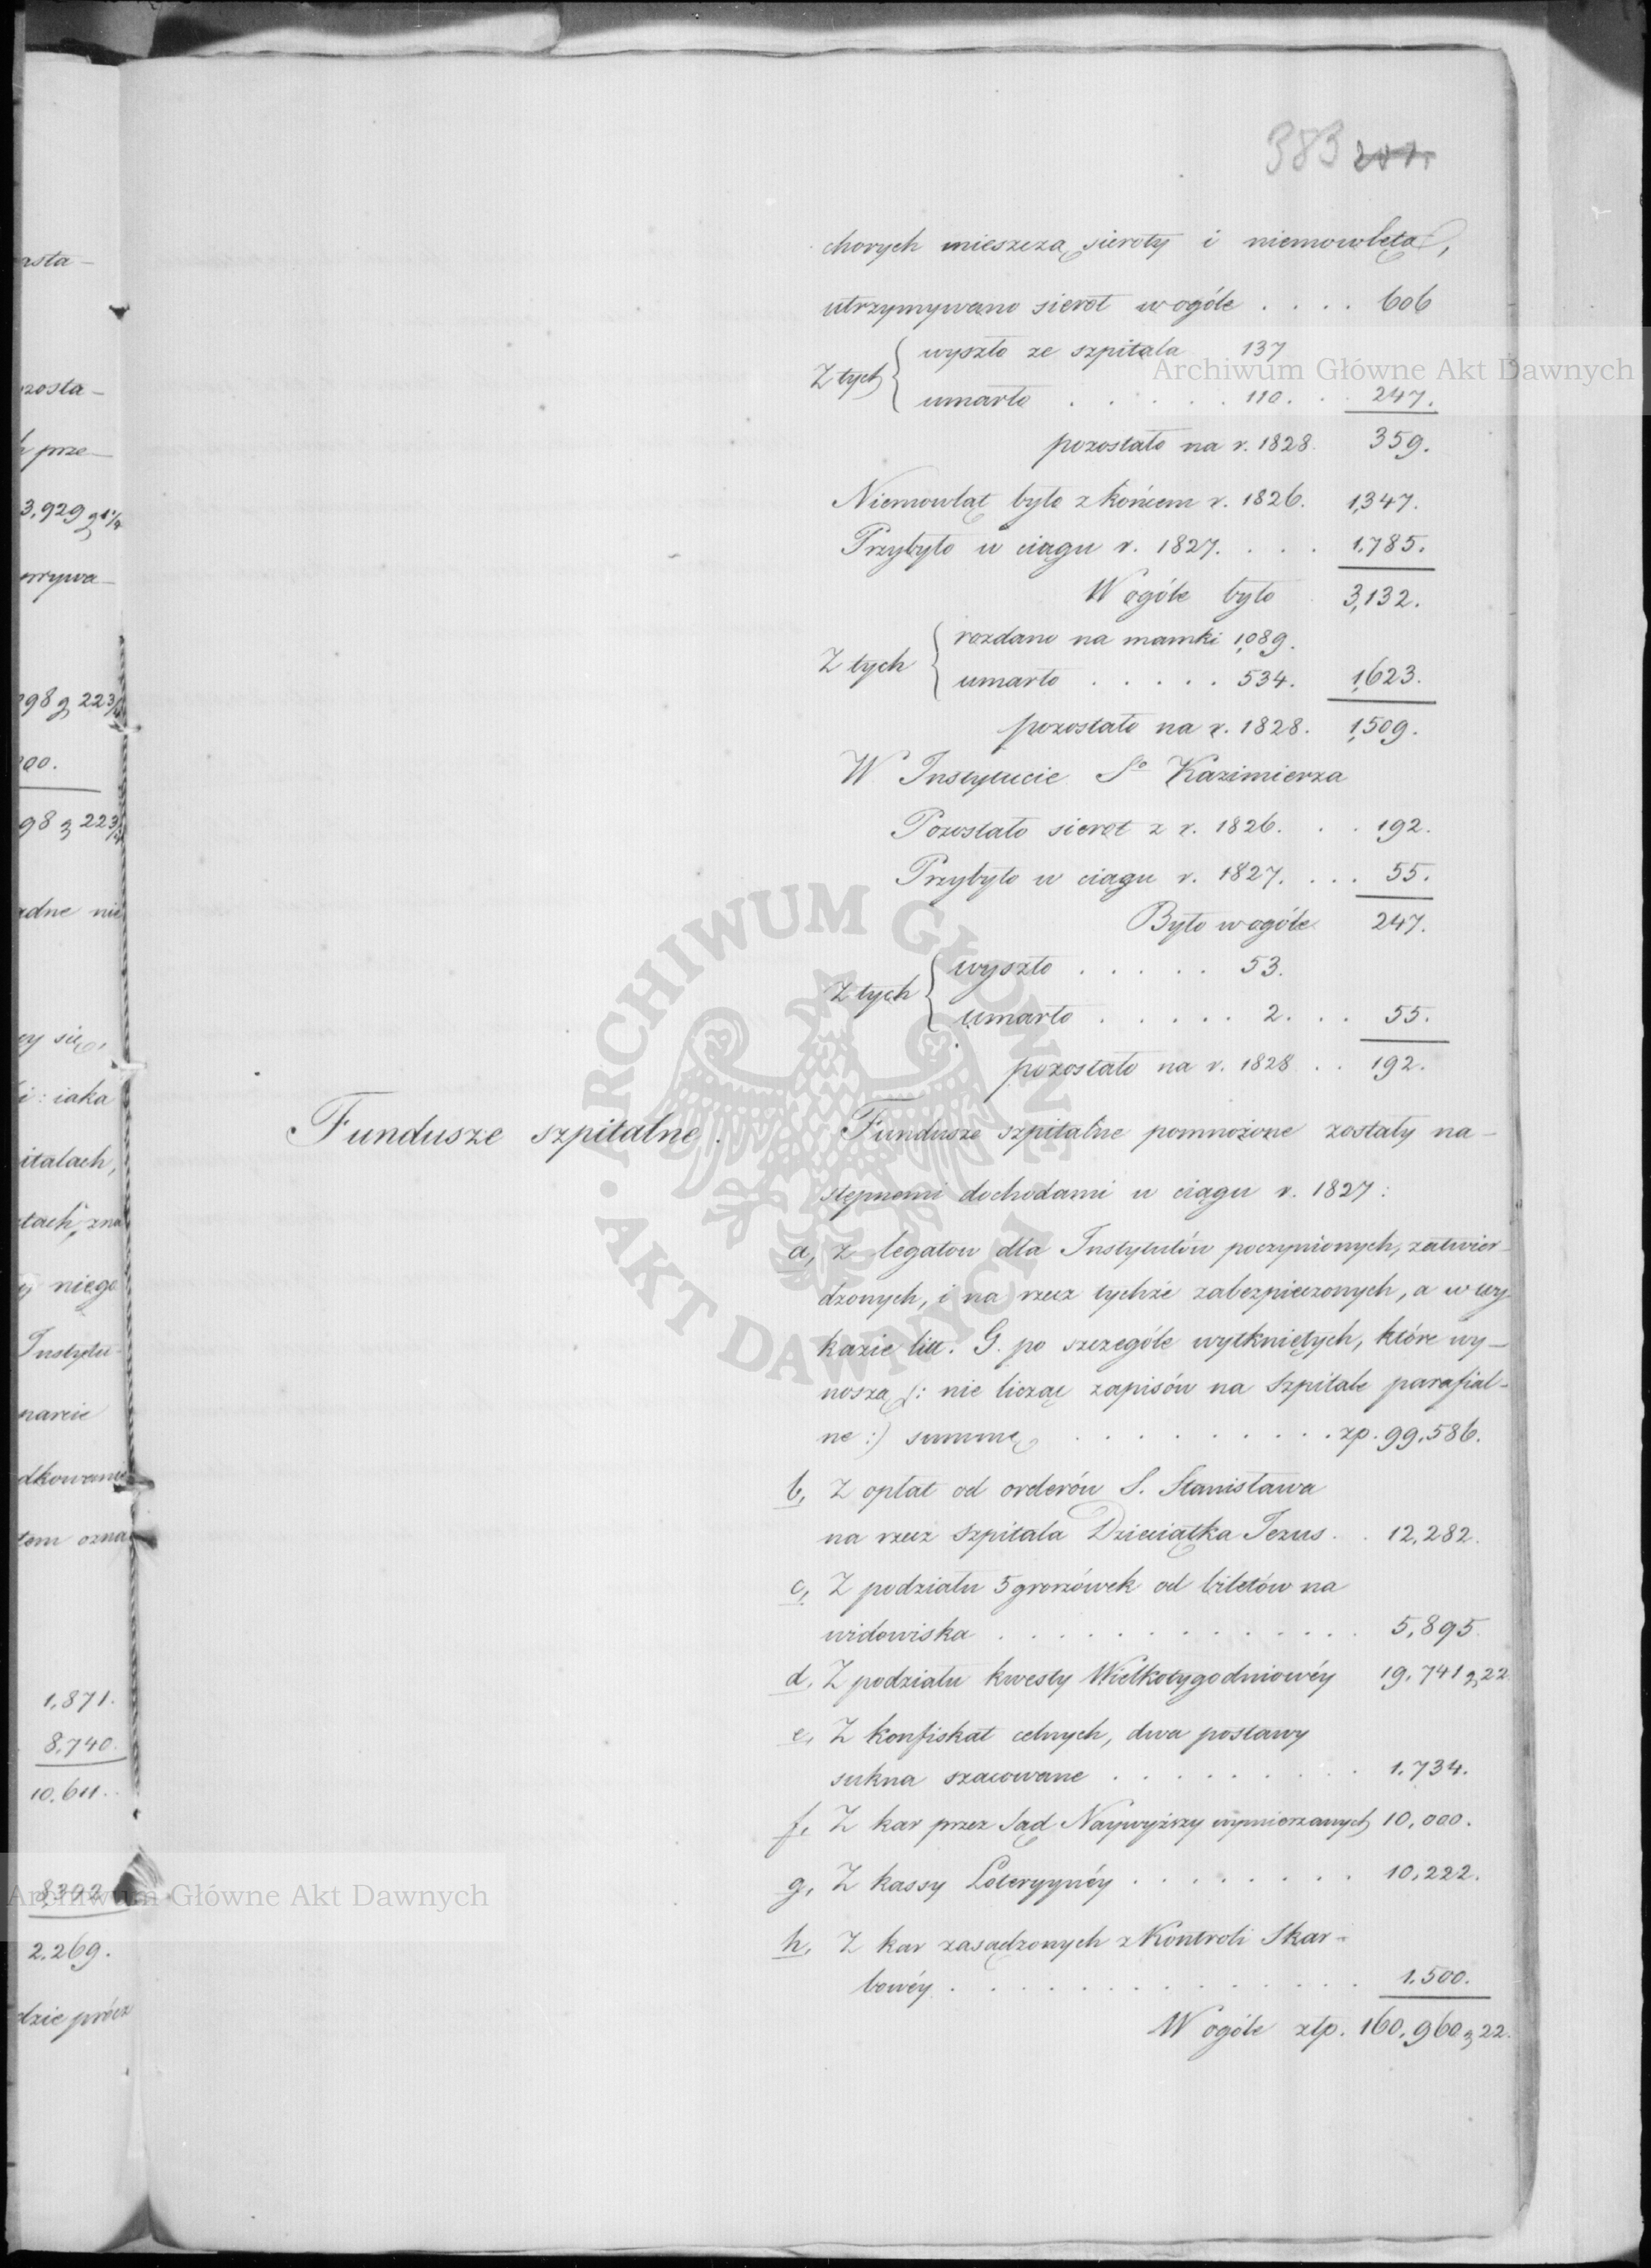 383 201.
chorych mieszczą sieroty i niemowlęta,
utrzymywano sierot wogóle . . . . 606
Z tych { wyszło ze szpitala 137
umarło . . . . . 110. . . 247.
pozostało na r. 1828. 359.
Niemowląt było z końcem r. 1826. 1,347.
Przybyło w ciągu r. 1827. . . . 1,785.
W ogóle było 3,132.
Z tych { rozdano na mamki 1,089.
umarło . . . . . 534. 1,623.
pozostało na r. 1828. 1,509.
W Instytucie Sº Kazimierza
Pozostało sierot z r. 1826. . . 192.
Przybyło w ciągu r. 1827. . . . 55.
Było wogóle 247.
Z tych { wyszło . . . . . 53.
umarło . . . . . 2. . . 55.
pozostało na r. 1828 . . 192.
Fundusze szpitalne.
Fundusze szpitalne pomnożone zostały na-
stępnemi dochodami w ciągu r. 1827:
a, z legatow dla Instytutów poczynionych, zatwier-
dzonych, i na rzecz tychże zabezpieczonych, a w wy-
kazie litt. G. po szczególe wytkniętych, które wy-
noszą (: nie licząc zapisów na Szpitale parafial-
ne :) summę . . . . . . . . . . zp. 99,586.
b, Z opłat od orderów S. Stanisława
na rzecz Szpitala Dzieciątka Jezus . . 12,282.
c, Z podziału 5 groszówek od biletów na
widowiska . . . . . . . . . . . . . 5,895.
d, Z podziału kwesty Wielkotygodniowéy 19,741 g 22.
e, Z konfiskat celnych, dwa postawy
sukna szacowane . . . . . . . . . 1,734.
f, Z kar przez Sąd Naywyższy wymierzanych 10,000.
g, Z kassy Loteryynéy . . . . . . . . 10,222.
h, Z kar zasądzonych z Kontroli Skar-
bowéy . . . . . . . . . . . . . . 1,500.
W ogóle złp. 160,960 g 22.
zosta-
prze-
3,929 g 1 1/4
98 g 22 3/4
00.
98 g 22 3/4
adne nie
się,
i: iaka
italach,
niego
Instytu-
1,871.
8,740.
10,611.
8,302
2,269.
dzie prócz
Archiwum Główne Akt Dawnych
ARCHIWUM GŁÓWNE · AKT DAWNYCH ·
Archiwum Główne Akt Dawnych